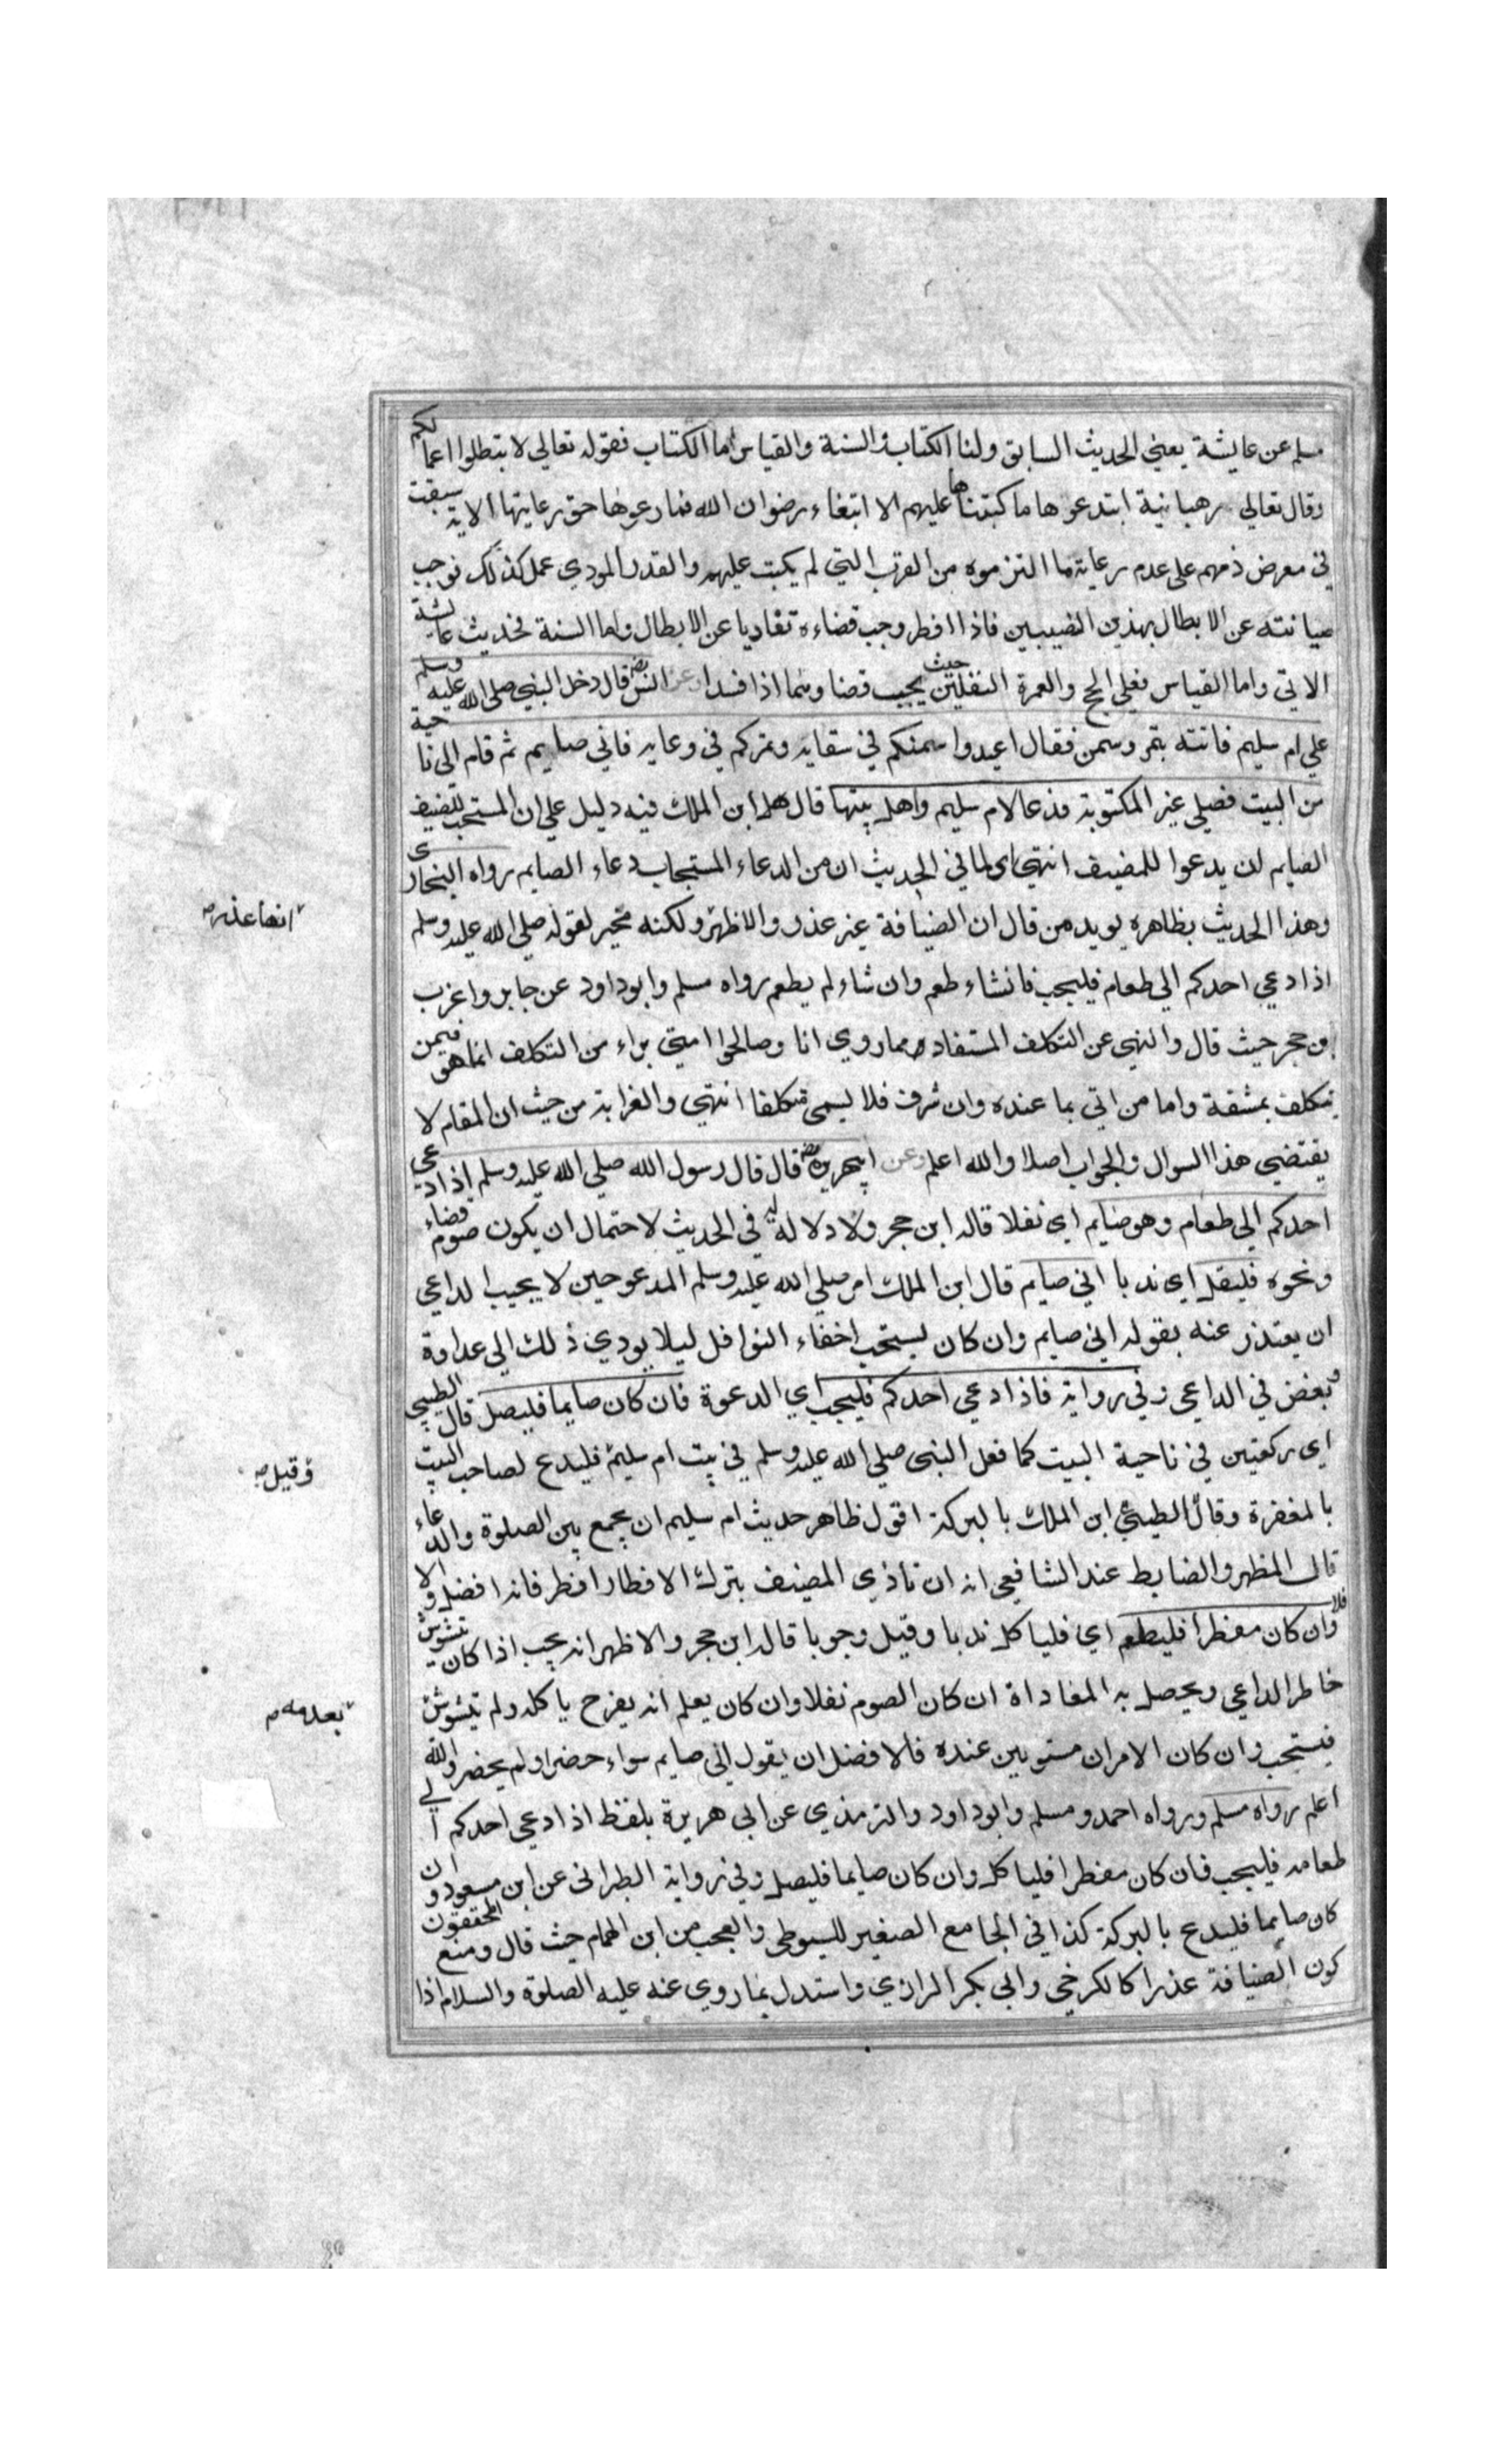 مسلم عن عايشة يعني الحديث السابق ولنا الكتاب والسنة والقياس اما الكتاب فقوله تعالى لا تبطلوا اعمالكم
وقال تعالى رهبانية ابتدعوها ما كتبناها عليهم الا ابتغاء رضوان الله فما رعوها حق رعايتها الاية سيقت
في معرض ذمهم على عدم رعاية ما التزموه من القرب التي لم يكتب عليهم والقدر المودي عمل كذلك فوجب
صيانته عن الابطال بهذين النصيبين فاذا افطر وجب قضاءه تفاديا عن الابطال واما السنة فحديث عايشة
الاتي واما القياس فعلى الحج والعمرة النفلين حيث يجب قضاوهما اذا فسدا وعن انس رضه قال دخل النبي صلى الله عليه وسلم
على ام سليم فاتته بتمر وسمن فقال اعيدوا سمنكم في سقايه وتمركم في وعايه فاني صايم ثم قام الى ناحية
من البيت فصلى غير المكتوبة فدعا لام سليم واهل بيتها قال ابن الملك فيه دليل على ان المستحب للضيف
الصايم ان يدعوا للمضيف انتهى اي لما في الحديث ان من الدعاء المستجاب دعاء الصايم رواه البخارى
وهذا الحديث بظاهره يويد من قال ان الضيافة غير عذر والاظهر ولكنه مخير لقوله صلى الله عليه وسلم
انها عذر صح
اذا دعي احدكم الى طعام فليجب فانشاء طعم وان شاء لم يطعم رواه مسلم وابوداود عن جابر واغرب
ابن حجر حيث قال والنهى عن التكلف المستفاد مما روي انا وصالحوا امتي براء من التكلف انما هو فيمن
يتكلف بمشقة واما من اتى بما عنده وان شرف فلا يسمى متكلفا انتهى والغرابة من حيث ان المقام لا
يقتضي هذا السوال والجواب اصلا والله اعلم وعن ابيهريرة رضه قال قال رسول الله صلى الله عليه وسلم اذا دعي
احدكم الى طعام وهو صايم اي نفلا قاله ابن حجر ولا دلالة له في الحديث لاحتمال ان يكون صوم قضاء
ونحوه فليقل اي ندبا اني صايم قال ابن الملك امر صلى الله عليه وسلم المدعو حين لا يجيب الداعي
ان يعتذر عنه بقوله اني صايم وان كان يستحب اخفاء النوافل ليلا يودي ذلك الى عداوة
وبغض في الداعي وفي رواية فاذا دعي احدكم فليجب اي الدعوة فان كان صايما فليصل قال الطيبي
اي ركعتين في ناحية البيت كما فعل النبى صلى الله عليه وسلم في بيت ام سليم فليدع لصاحب البيت
وقيل صح
بالمغفرة وقال الطيبي ابن الملك بالبركة اقول ظاهر حديث ام سليم ان يجمع بين الصلوة والدعاء
قال المظهر والضابط عند الشافعي انه ان تاذي المضيف بترك الافطار افطر فانه افضل والا
فلا وان كان مفطرا فليطعم اي فلياكل ندبا وقيل وجوبا قاله ابن حجر والاظهر انه يجب اذا كان يتشوش
خاطر الداعي ويحصل به المعاداة ان كان الصوم نفلا وان كان يعلم انه يفرح باكله ولم يتشوش
بعدمه صح
فيستحب وان كان الامران مستويين عنده فالافضل ان يقول اني صايم سواء حضر او لم يحضر والله
اعلم رواه مسلم ورواه احمد ومسلم وابوداود والترمذي عن ابي هريرة بلفظ اذا دعي احدكم الى
طعامه فليجب فان كان مفطرا فلياكل وان كان صايما فليصل وفي رواية الطبرانى عن ابن مسعود وان
كان صايما فليدع بالبركة كذا في الجامع الصغير للسيوطى والعجب من ابن الهمام حيث قال ومنع المحققون
كون الضيافة عذرا كالكرخي وابي بكر الرازي واستدل بما روي عنه عليه الصلوة والسلام اذا